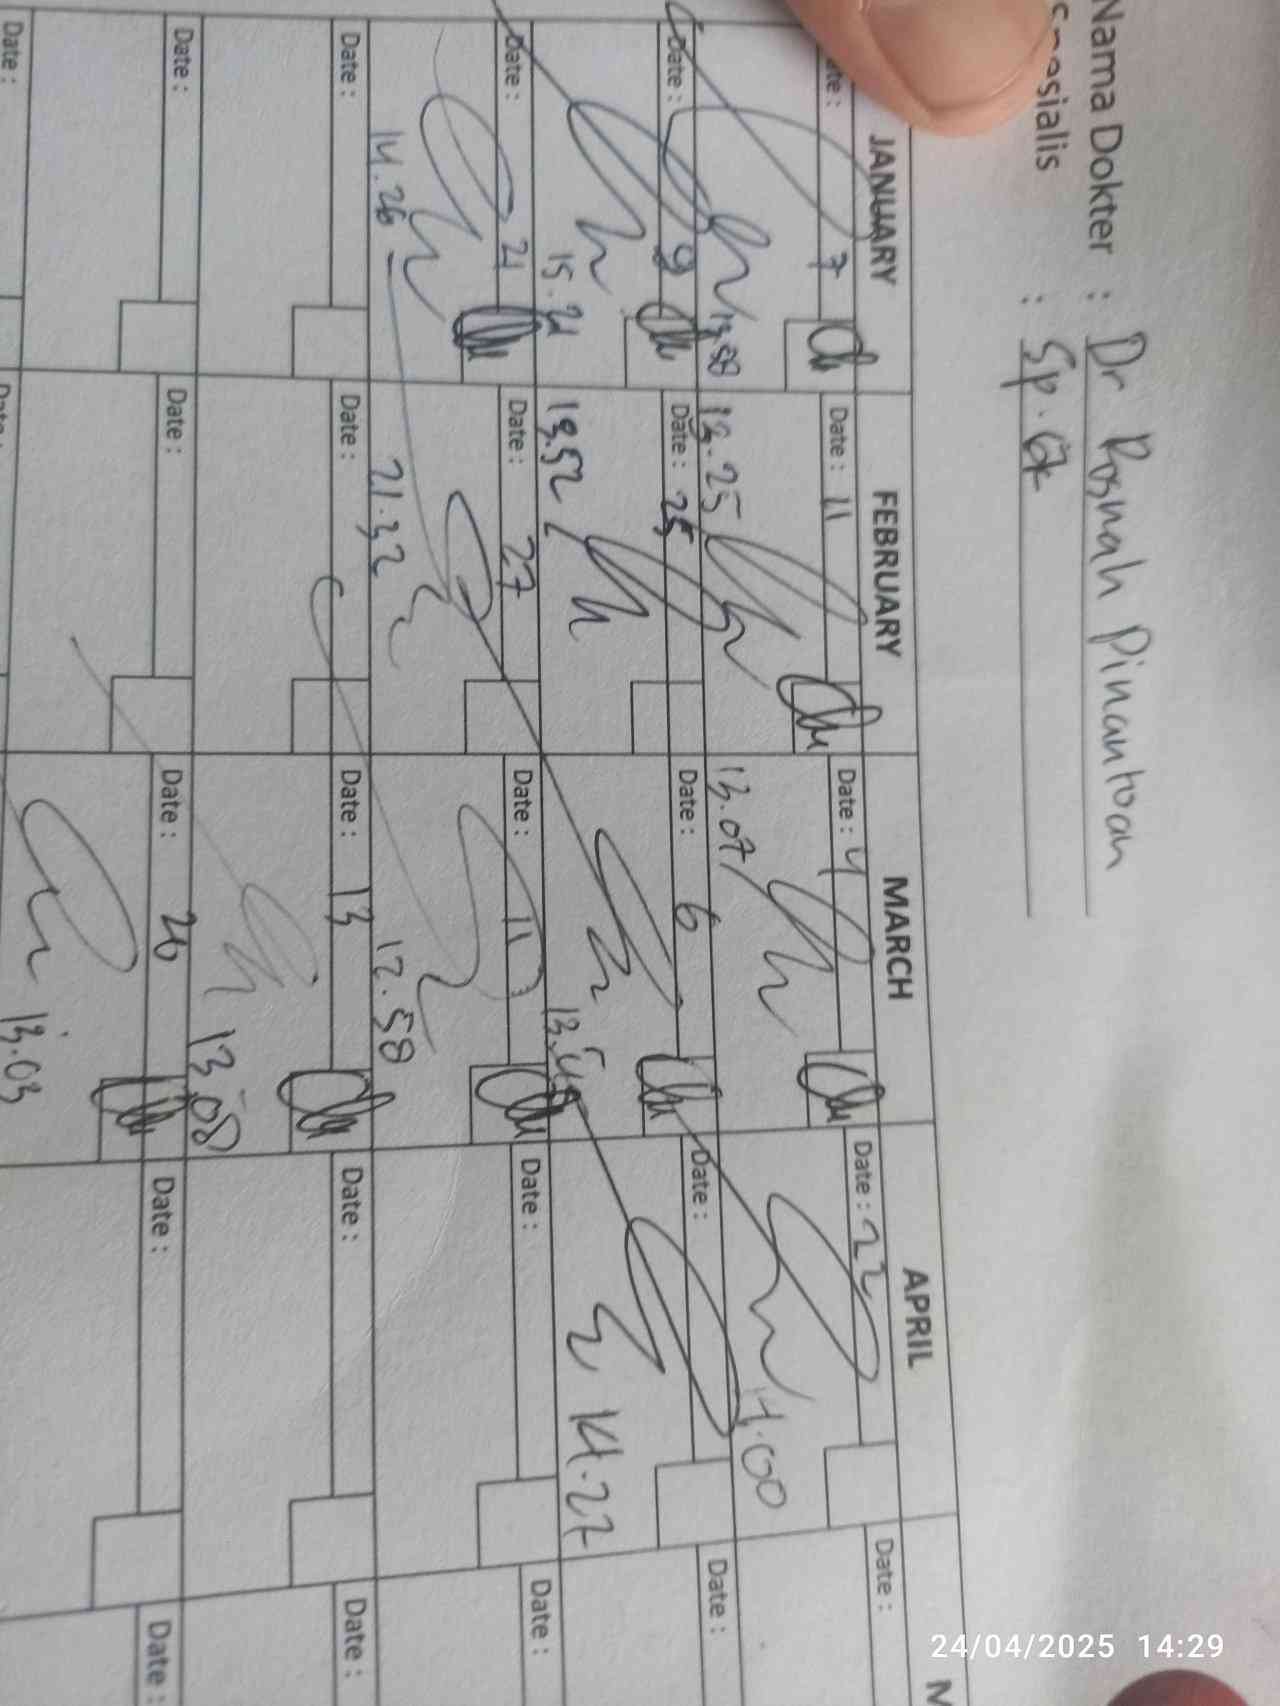 Nama Dokter : Dr Rosnah Pinantoan
Spesialis : Sp.
JANUARY FEBRUARY MARCH APRIL M
Date : 7 Date : 11 Date : 4 Date : 22 Date :
13.25 13.07 14.00
Date : 9 Date : 25 Date : 6 Date : Date :
15.21 13.52 14.27
Date : 21 Date : 27 Date : 11 Date : Date :
14.26 21.32 12.58
Date : Date : Date : 13 Date : Date :
13.08
Date : Date : Date : 26 Date : Date :
13.03
Date : Date :
24/04/2025 14:29